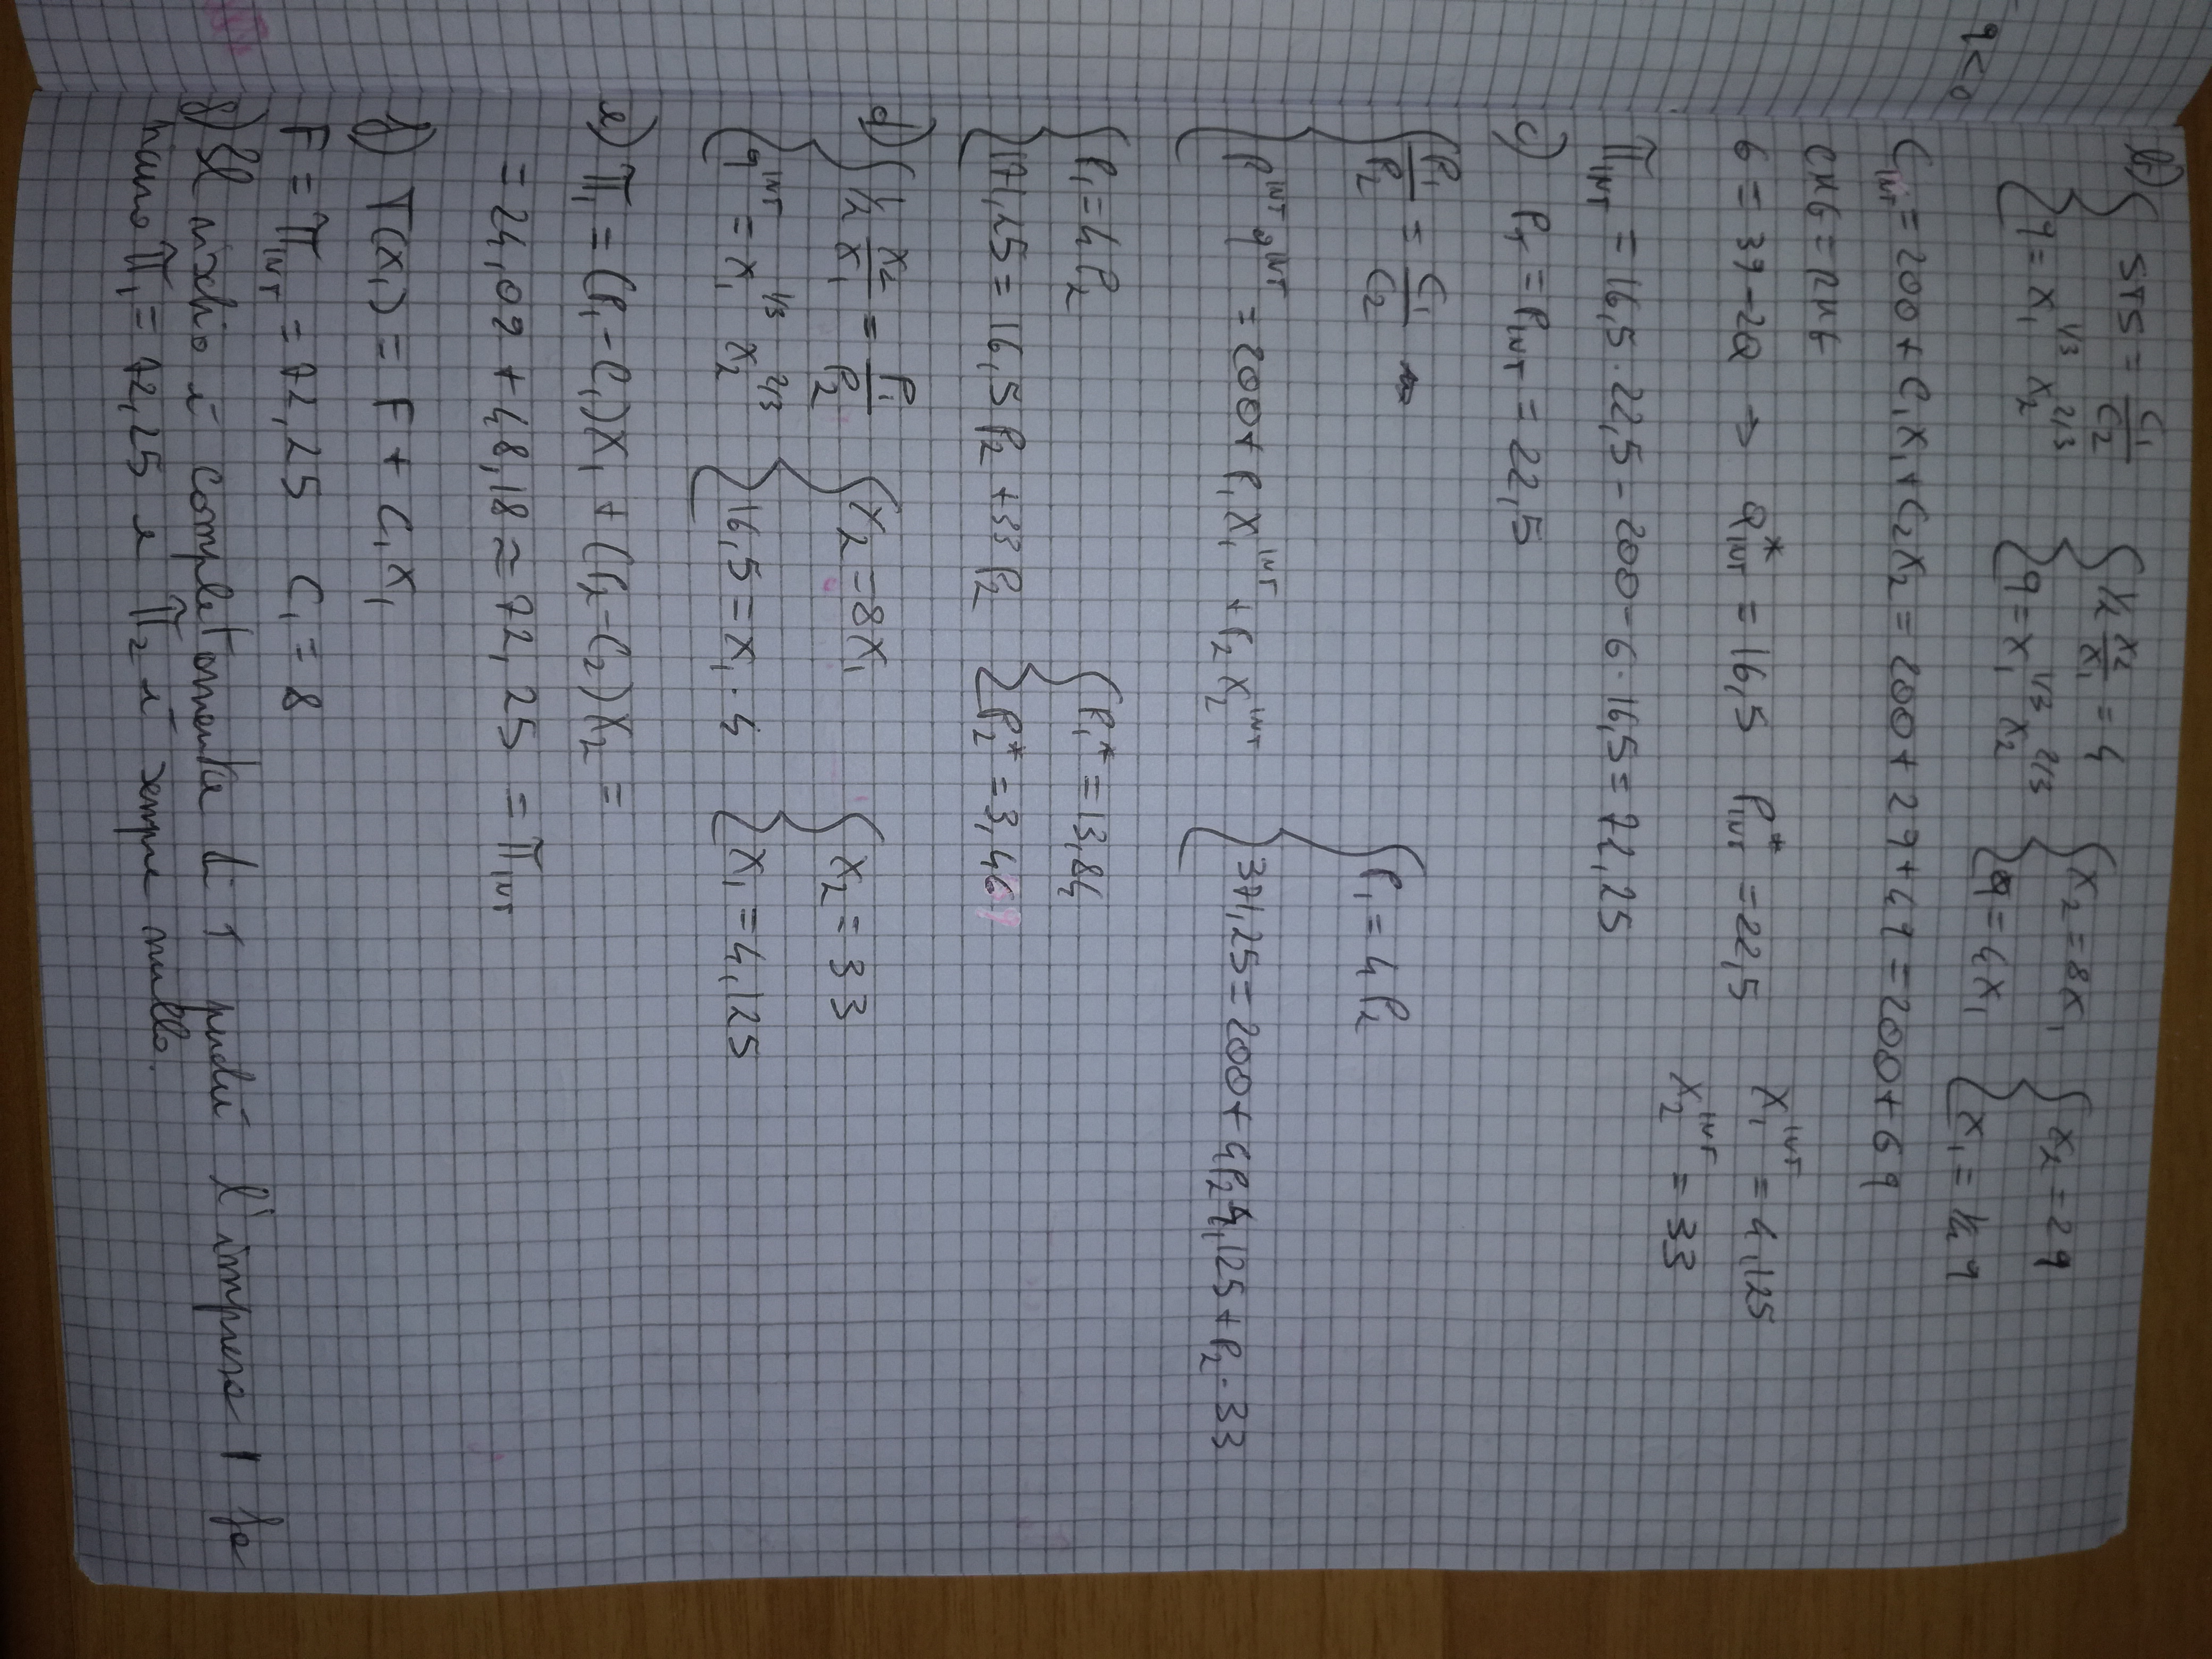 b) { STS = C₁/C₂   { ½ X₂/X₁ = 4   { X₂ = 8X₁   { X₂ = 2q
{ q = X₁^1/3 X₂^2/3   { q = X₁^1/3 X₂^2/3   { q = 4X₁   { X₁ = ¼ q
q<0
C_INT = 200 + C₁X₁ + C₂X₂ = 200 + 2q + 4q = 200 + 6q
CMG = RMG
6 = 39 - 2Q → Q*_INT = 16,5   P*_INT = 22,5   X₁^INT = 4,125
X₂^INT = 33
Π_INT = 16,5 · 22,5 - 200 - 6 · 16,5 = 72,25
c) P_T = P_INT = 22,5
{ P₁/P₂ = C₁/C₂   { P₁ = 4 P₂
{ P^INT q^INT = 200 + P₁ X₁^INT + P₂ X₂^INT   { 371,25 = 200 + 4P₂ 4,125 + P₂ · 33
{ P₁ = 4 P₂   { P₁* = 13,84
{ 171,25 = 16,5 P₂ + 33 P₂   { P₂* = 3,46
d) { ½ X₂/X₁ = P₁/P₂   { X₂ = 8X₁   { X₂ = 33
{ q^INT = X₁^1/3 X₂^2/3   { 16,5 = X₁ · 4   { X₁ = 4,125
e) Π₁ = (P₁ - C₁)X₁ + (P₂ - C₂)X₂ =
= 24,09 + 48,18 ≈ 72,25 = Π_INT
f) T(X₁) = F + C₁X₁
F = Π_INT = 72,25   C₁ = 8
g) Il rischio è completamente di 1 perché l'impresa 1 fa
Π₁ = 72,25 e Π₂ è sempre nullo.